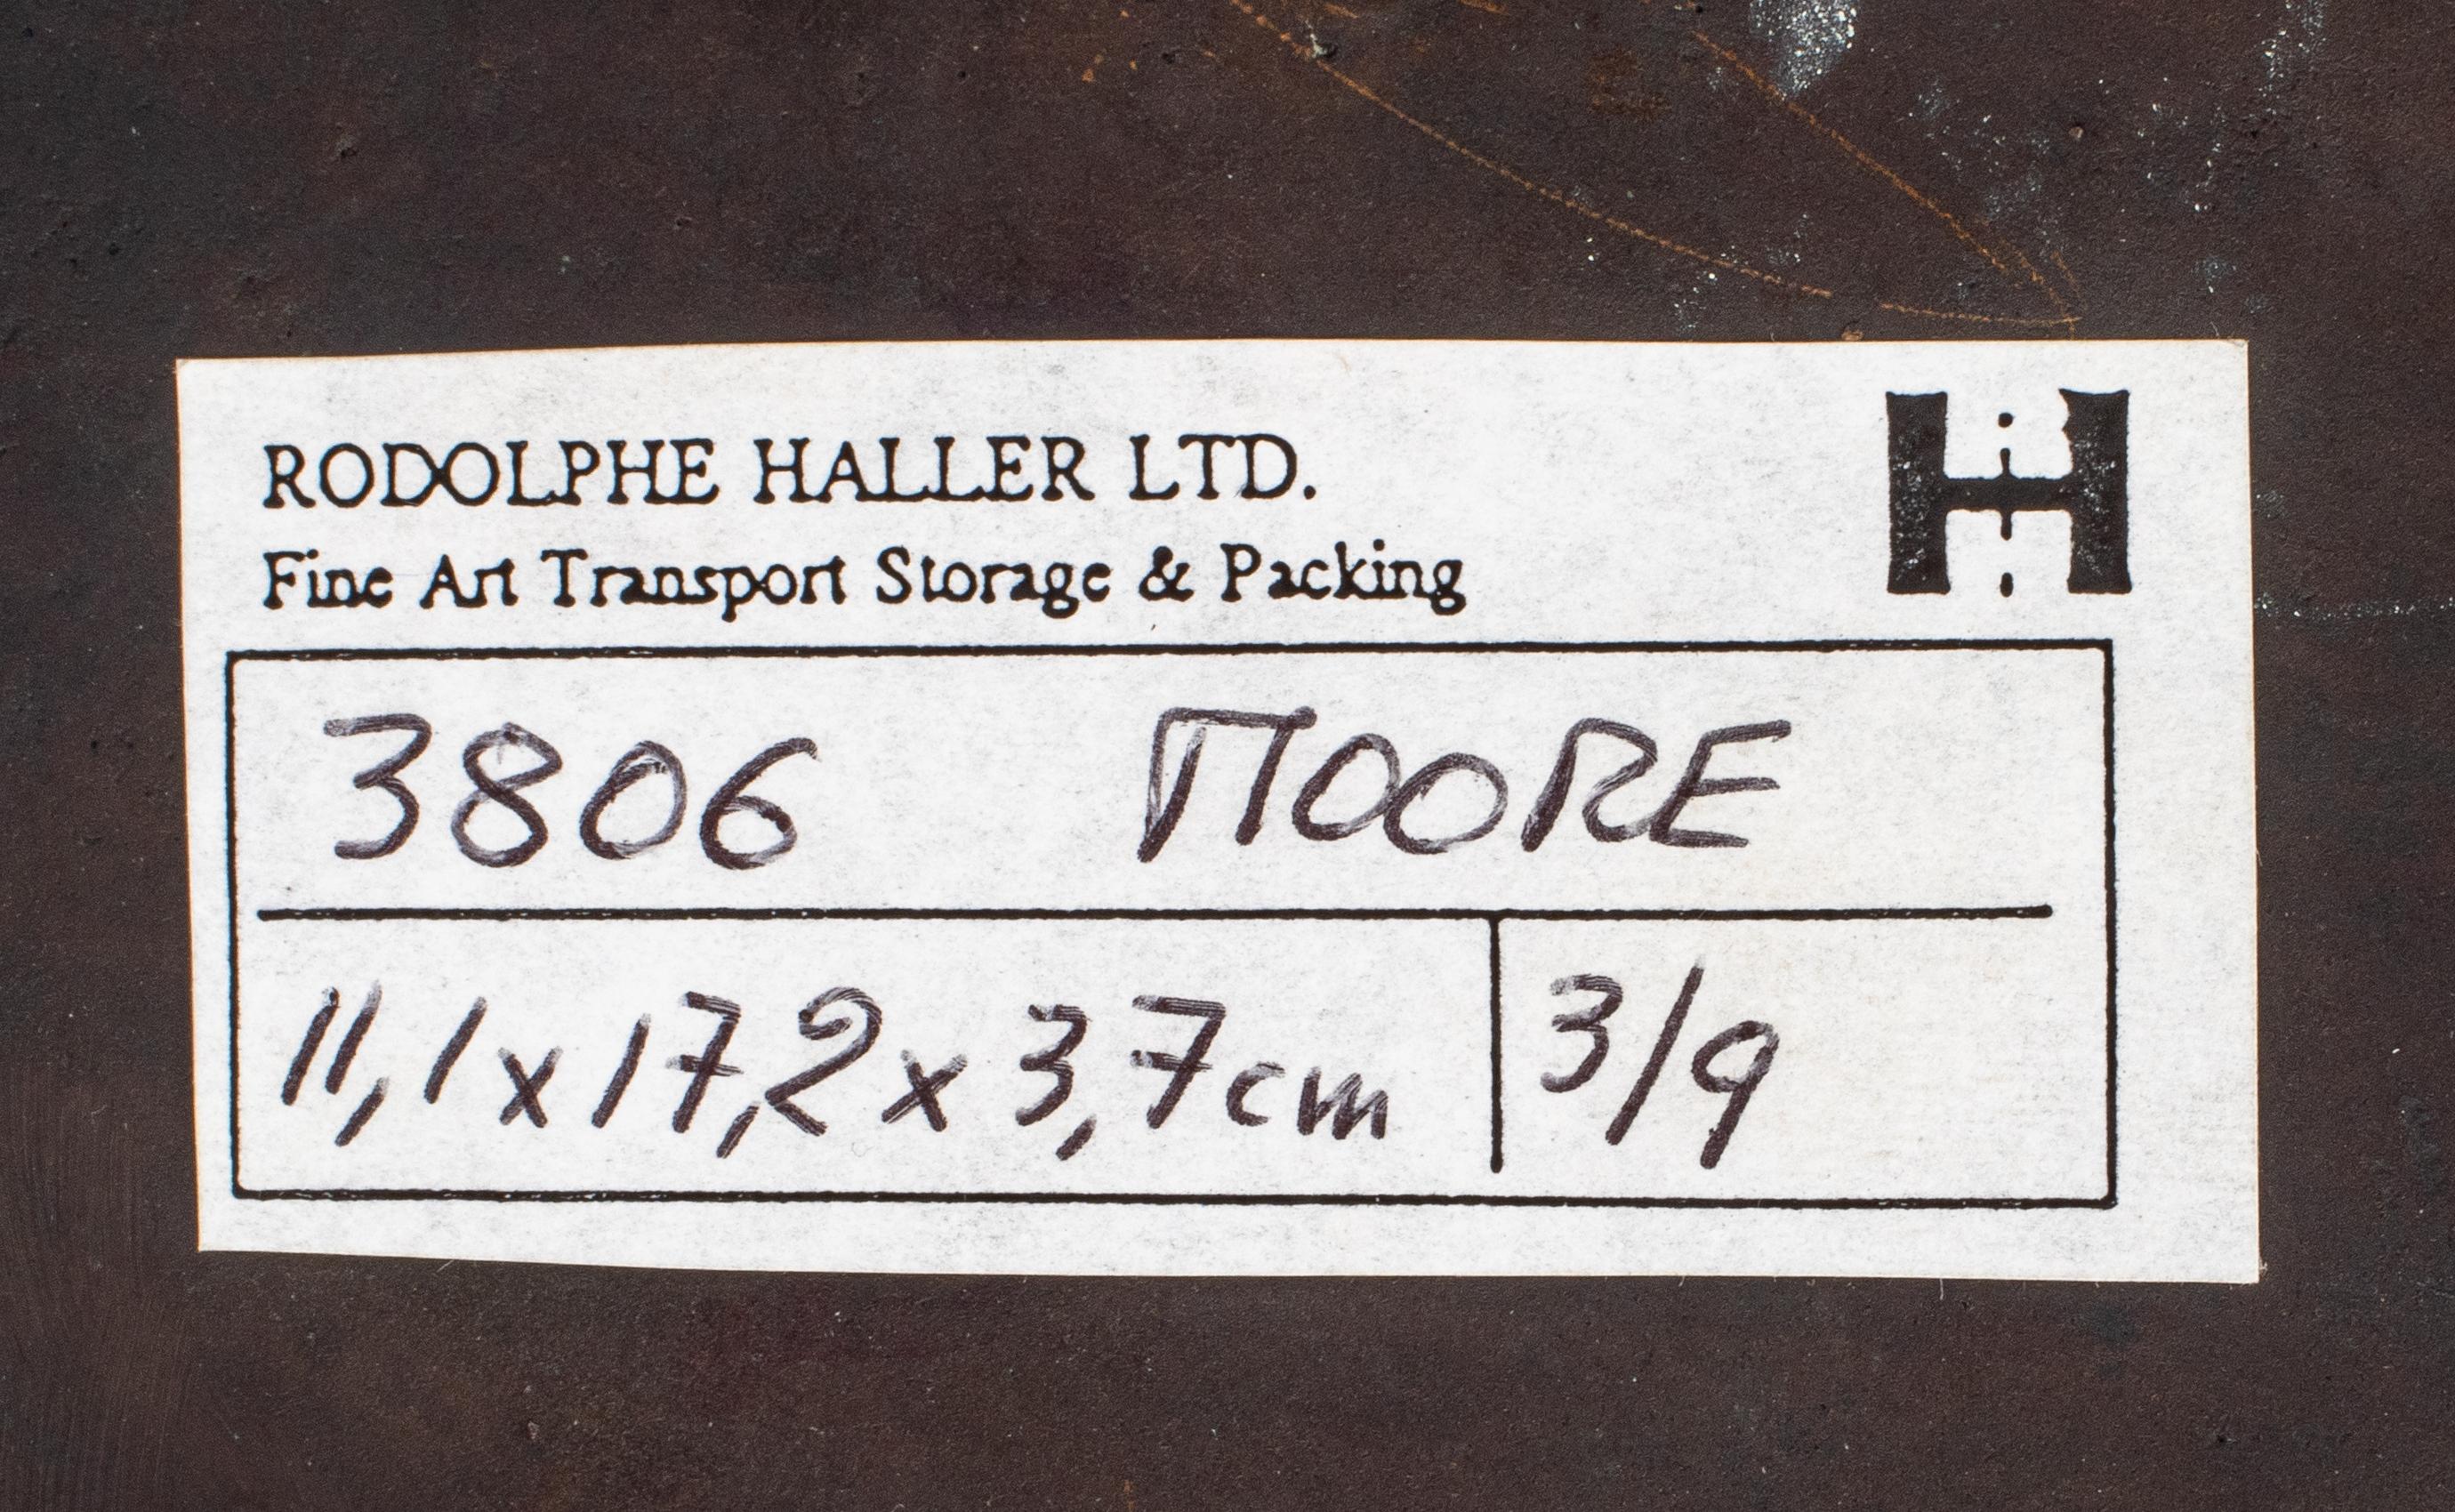 RODOLPHE HALLER LTD.
H
Fine Art Transport Storage & Packing
3806 MOORE
11,1 x 17,2 x 3,7 cm 3/9